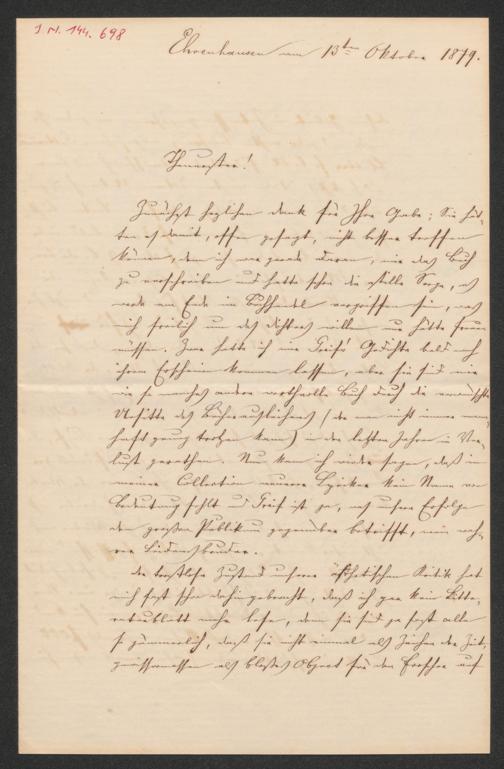 I.N. 144.698
Ehrenhausen am 13ten Oktober 1879.
Theuerster!
Zunächst herzlichen Dank für Ihre Gabe; Sie hät-
ten es damit, offen gesagt, nicht besser treffen
können, denn ich war gerade daran, mir das Buch
zu verschreiben und hatte schon die stille Sorge, es
werde am Ende im Buchhandel vergriffen sein, was
mich freilich um des Dichters willen nur hätte freuen
müssen. Zwar hatte ich mir Greifs Gedichte bald nach
ihrem Erscheinen kommen lassen, aber sie sind mir
wie so manches andere werthvolle Buch durch die verwünschte
Unsitte des Bücherausleihens (der man nicht immer mann-
haft genug trotzen kann) in den letzten Jahren in Ver-
lust gerathen. Nun kann ich wieder sagen, daß in
meiner Collection neuerer Lyriker kein Name von
Bedeutung fehlt und Greif ist ja, was unsere Erfolge
dem großen Publikum gegenüber betrifft, mein wah-
rer Leidensbruder.
Der trostlose Zustand unserer ästhetischen Kritik hat
mich fast schon dahin gebracht, daß ich gar kein Litte-
raturblatt mehr lese, denn sie sind ja fast alle
so jämmerlich, daß sie nicht einmal als Zeichen der Zeit,
gewissermassen als bloßes Object für den Forscher auf